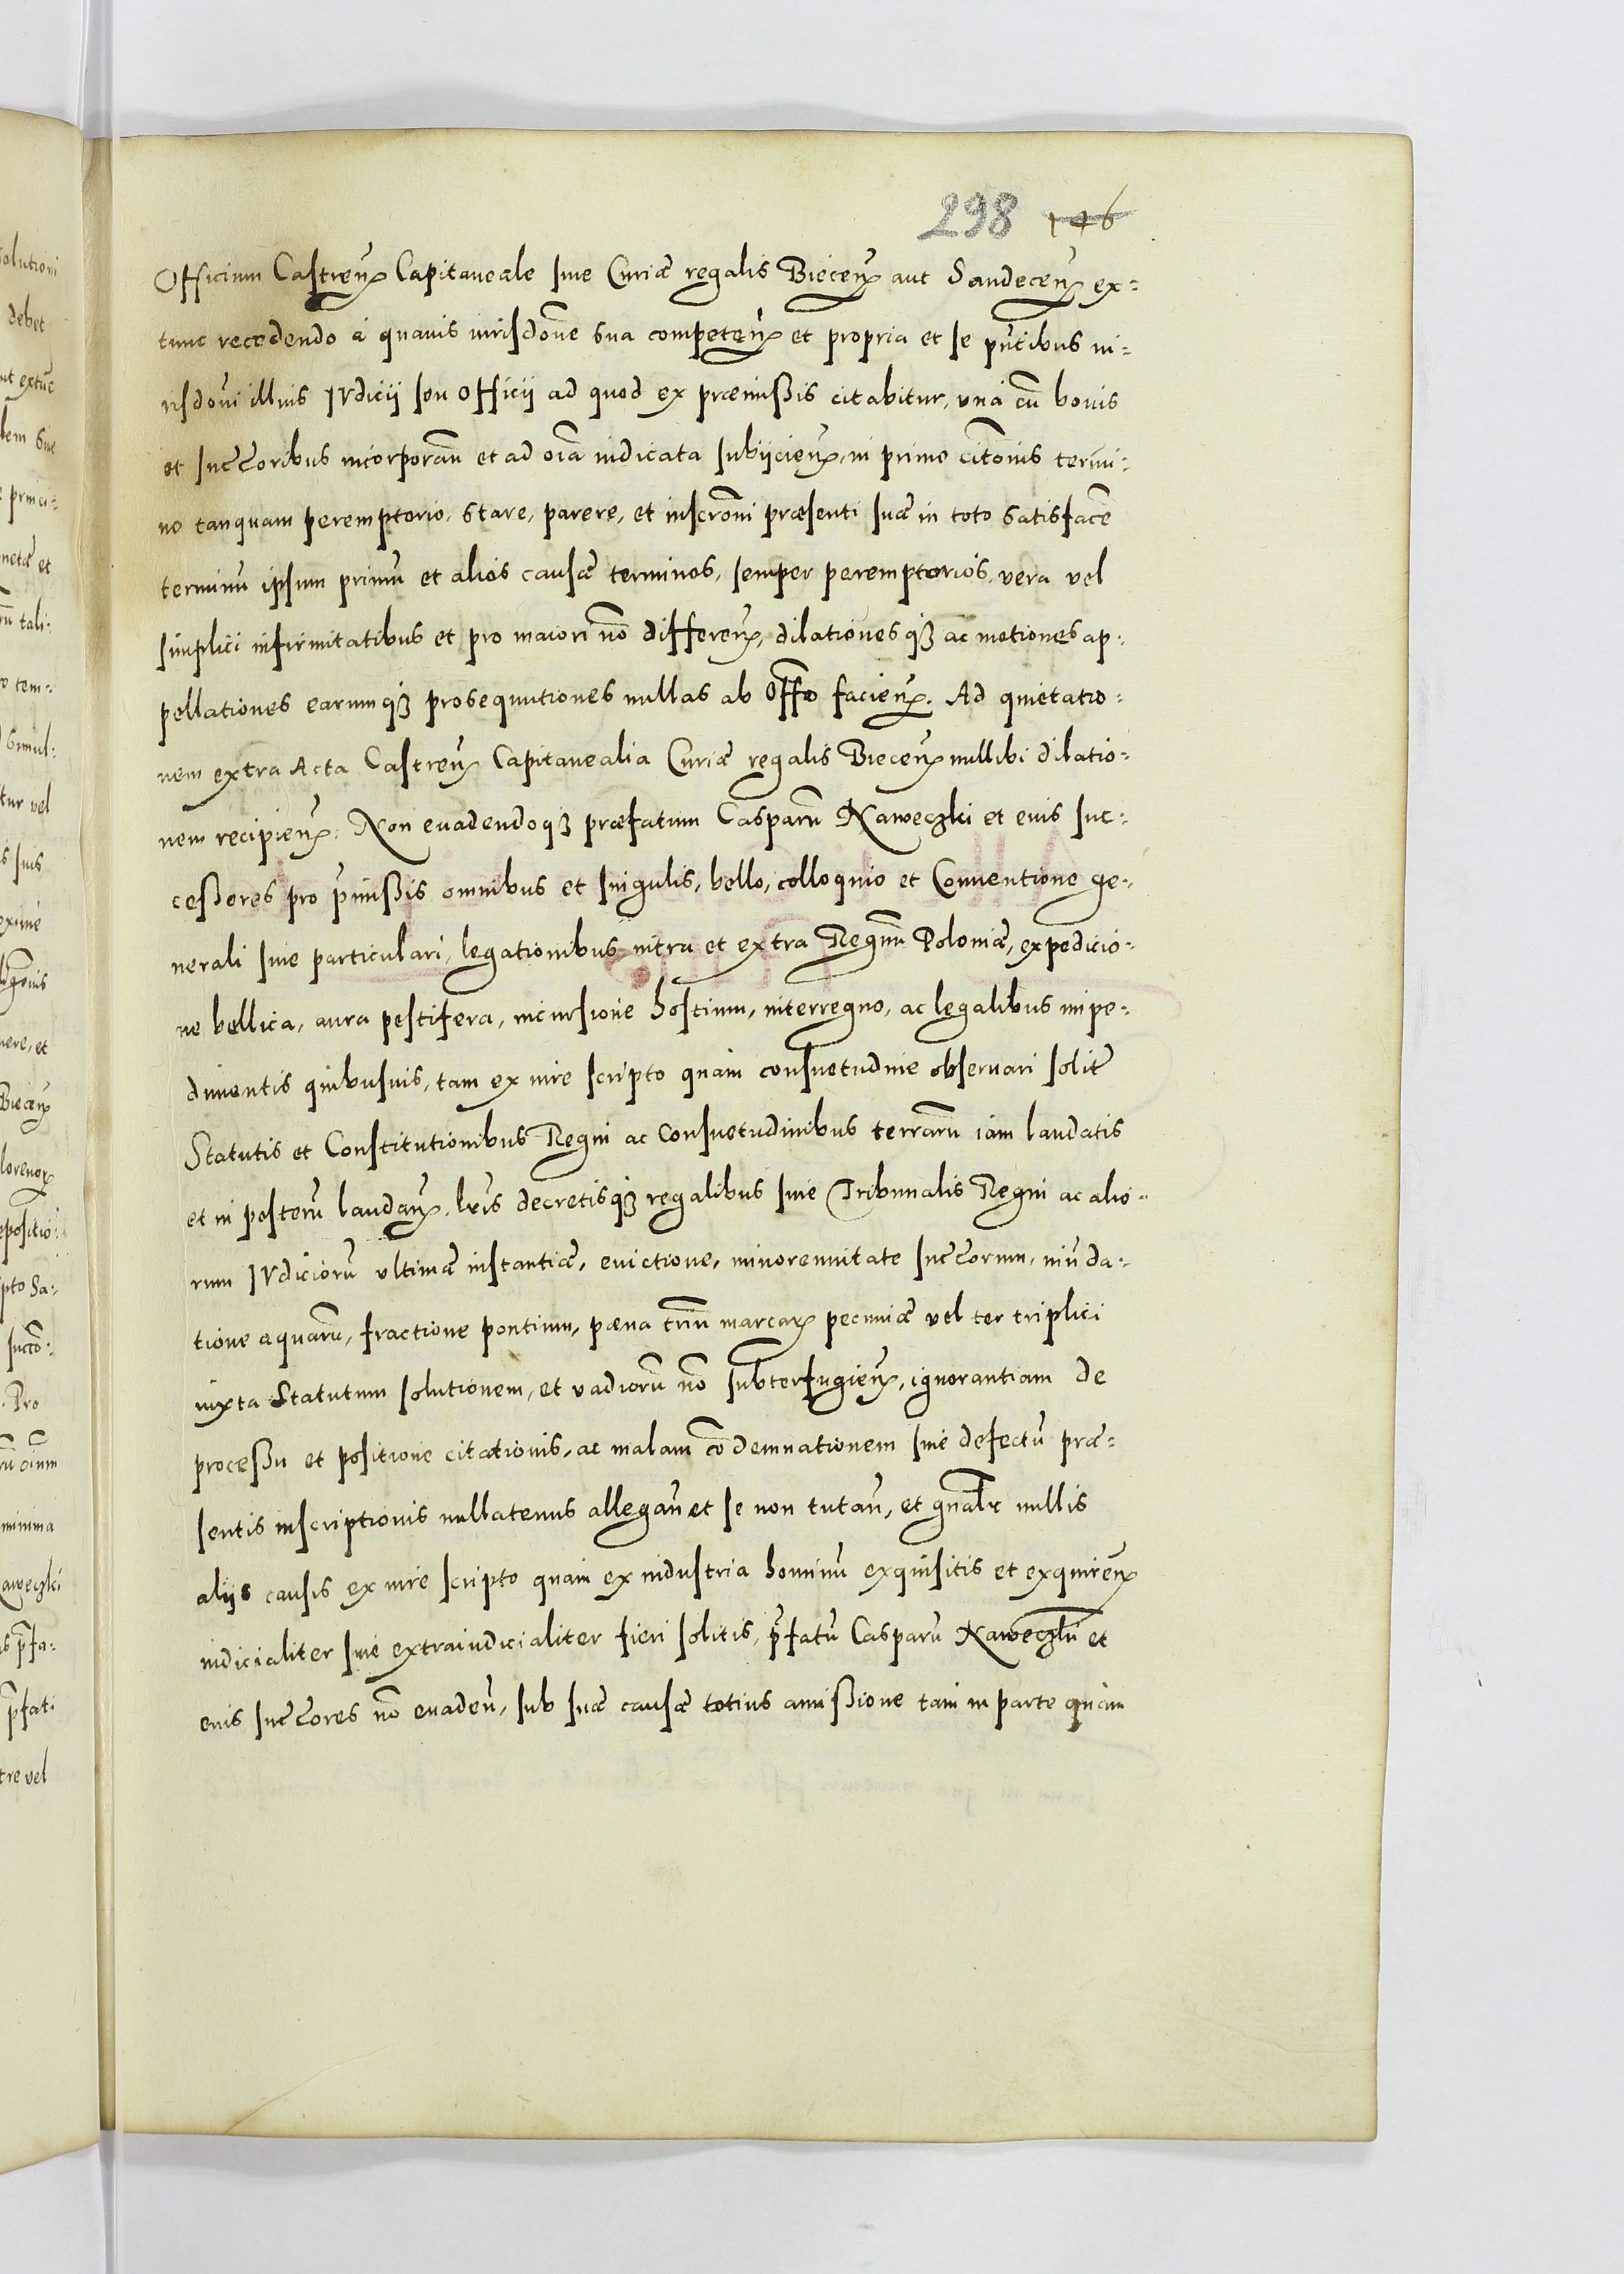 298 146
Officium Castreñ Capitaneale siue Curiæ regalis Biecenȝ aut Sandecenȝ ex-
tunc recedendo à quauis iurisdoñe sua competenȝ et propria et se pñtibus iu-
risdoñi illius IVdicij seu Officij ad quod ex præmißis citabitur, vnà cũ bonis
et succoribus incorporañ et ad oĩa iudicata subijcienȝ, in primo citõnis termi-
no tanquam peremptorio, stare, parere, et inscroñi præsenti suæ in toto satisfacẽ
terminũ ipsum primũ et alios causæ terminos, semper peremptorios, vera vel
simplici infirmitatibus et pro maiori nõ differenȝ, dilationes qȝ ac motiones ap-
pellationes earumqȝ prosequutiones nullas ab Offo facienȝ. Ad quietatio-
nem extra Acta Castrenȝ Capitanealia Curiæ regalis Biecenȝ nullibi dilatio-
nem recipienȝ. Non euadendoqȝ præfatum Casparũ Naweczki et eius suc-
ceßores pro p̃mißis omnibus et singulis, bello, colloquio et Conuentione ge-
nerali siue particulari, legationibus intra et extra Regnũ Poloniæ, expedicio-
ne bellica, aura pestifera, incursione hostium, interregno, ac legalibus impe-
dimentis quibusuis, tam ex iure scripto quàm consuetudine obseruari solit̃
Statutis et Constitutionibus Regni ac Consuetudinibus terrarũ iam laudatis
et in posterũ laudanȝ, lr̃is decretisqȝ regalibus siue Tribunalis Regni ac alio-
rum IVdiciorũ vltimæ instantiæ, euictione, minorennitate succorum, inũda-
tione aquarũ, fractione pontium, pæna triũ marcarȝ pecuniæ vel ter triplici
iuxta Statutum solutionem, et vadiorũ nõ subterfugienȝ, ignorantiam de
proceßu et positione citationis, ac malam cõdemnationem siue defectũ præ-
sentis inscriptionis nullatenus allegañ et se non tutañ, et gñalr̃ nullis
alijs causis ex iure scripto quàm ex industria hominũ exquisitis et exquirenȝ
iudicialiter siue extraiudicialiter fieri solitis, p̃fatũ Casparũ Naweczki et
eius succores nõ euadeñ, sub suæ causæ totius amißione tam in parte quàm